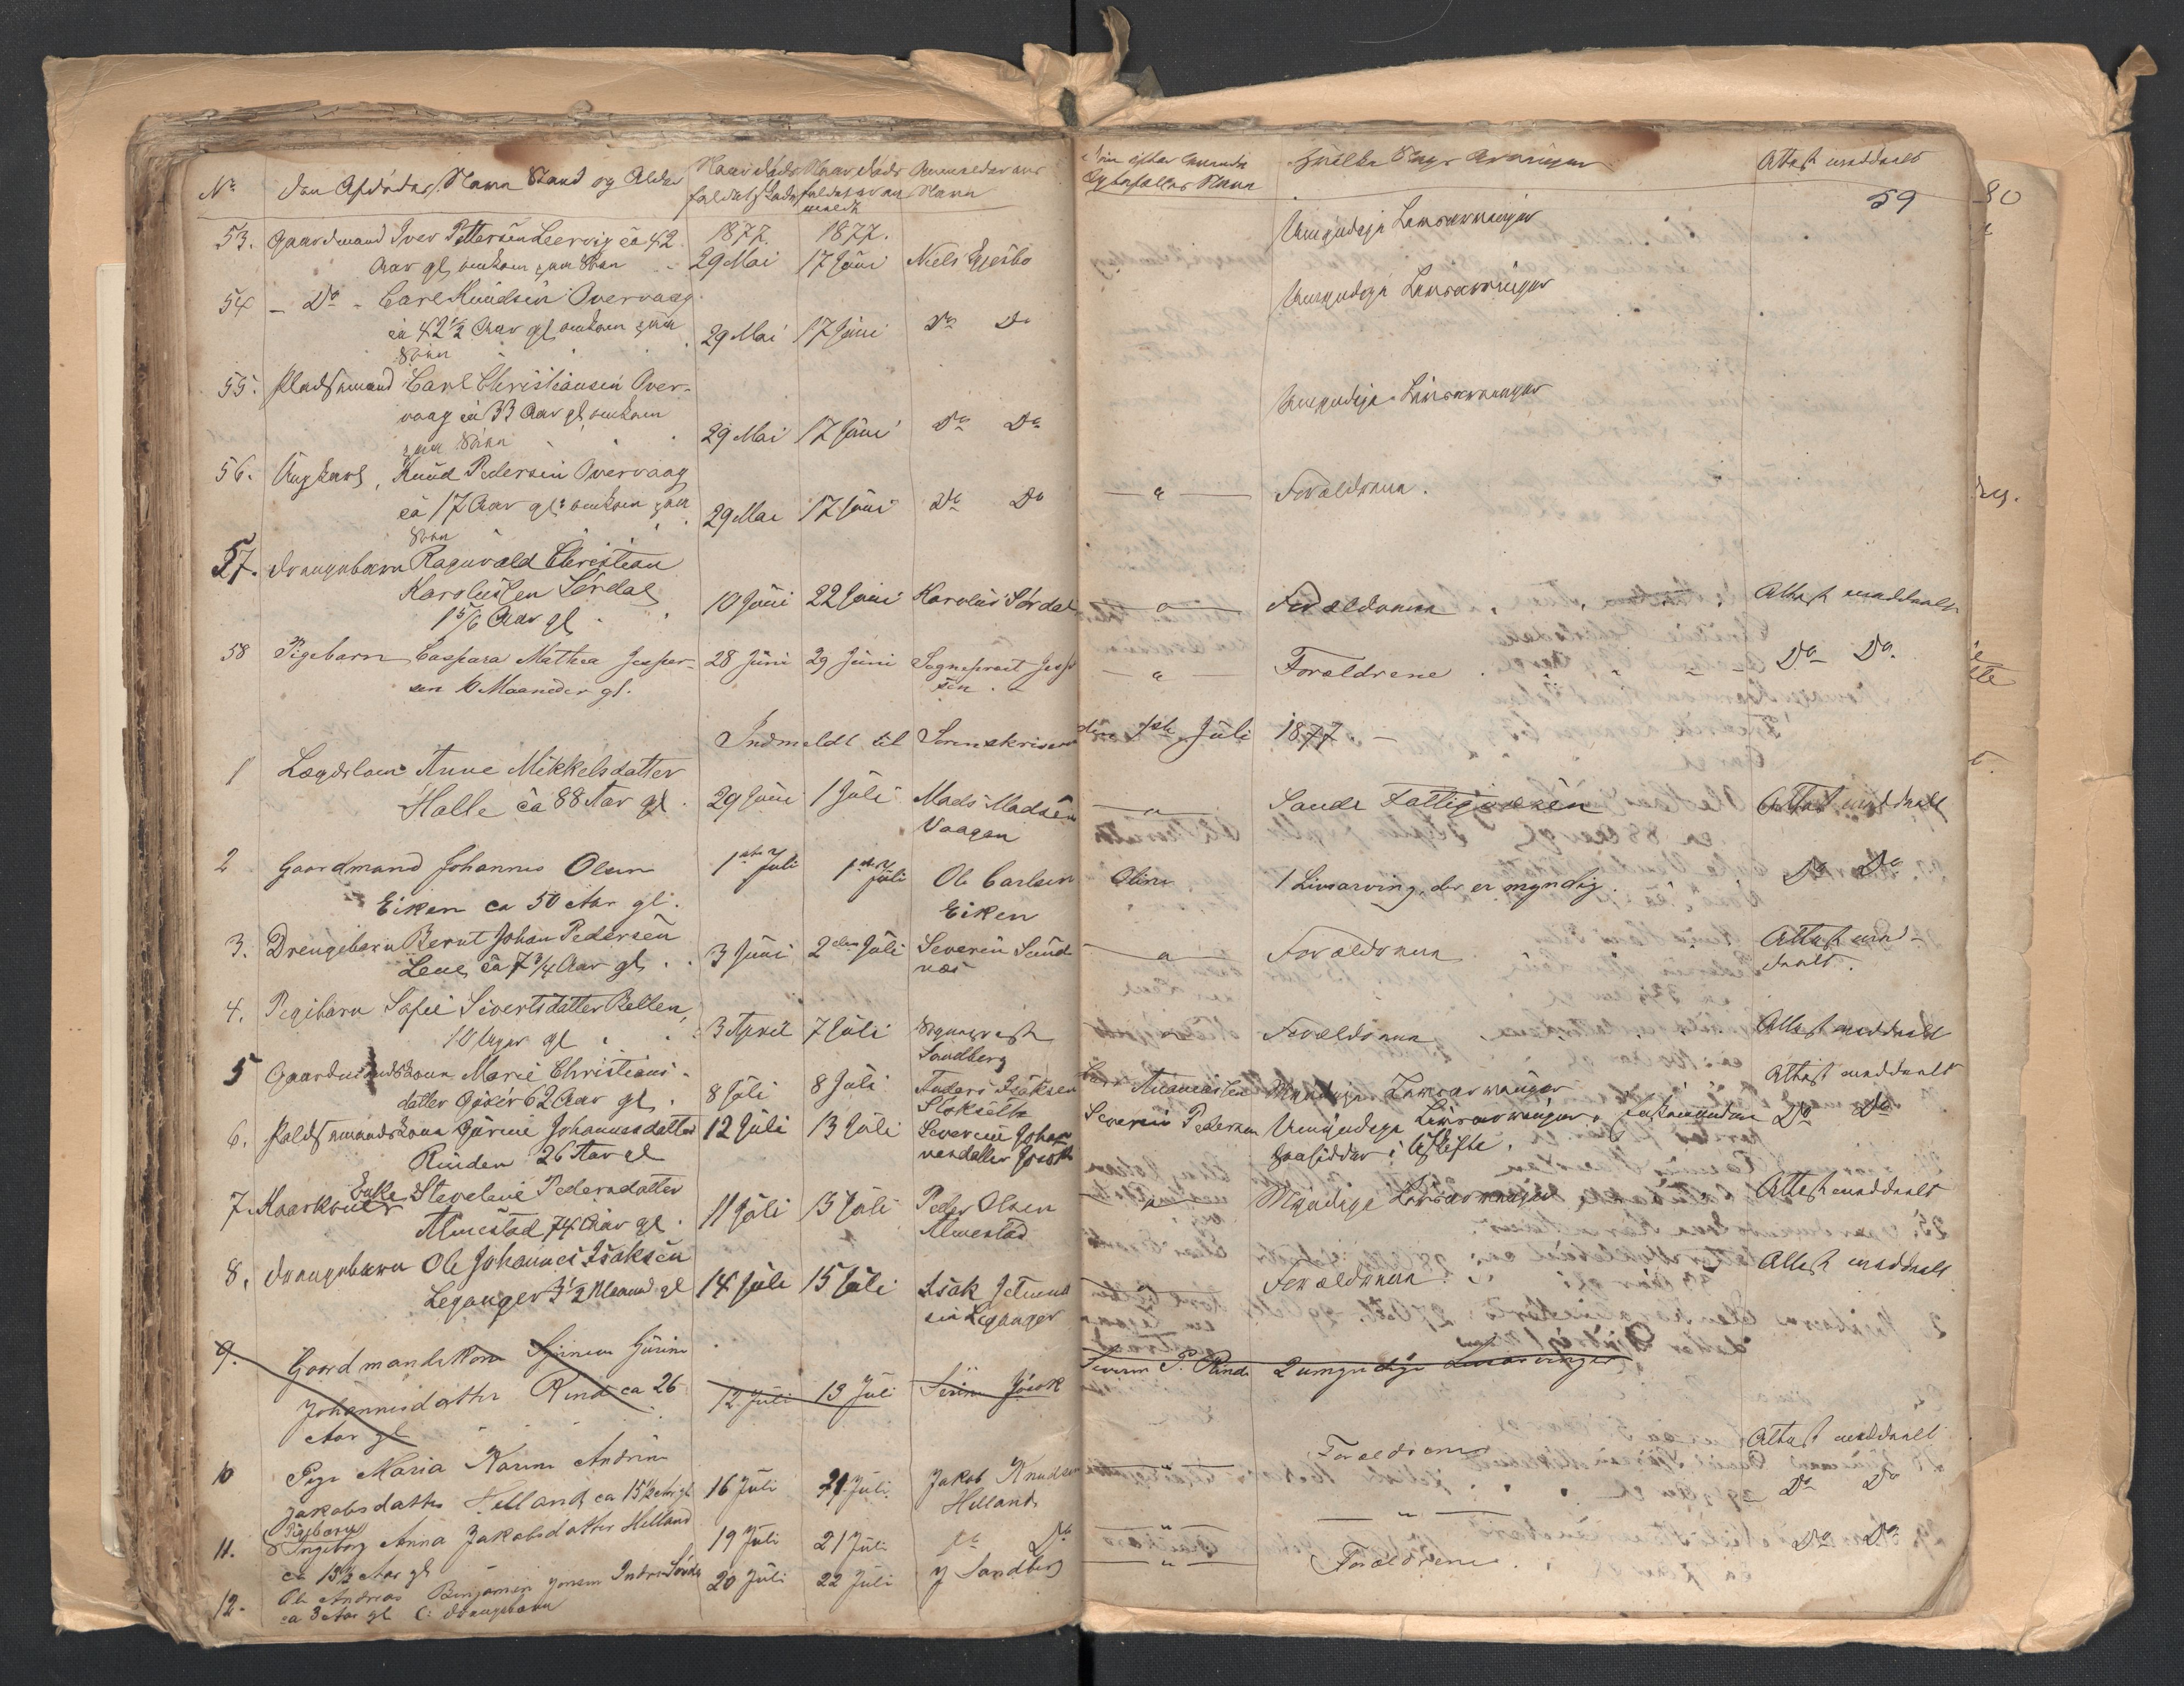 No. Den Afdødes Navn Stand og Alder Naar Døds- Naar Døds- Anmelderens
faldet skede faldet er an- Navn
meldt
Den efterlevende
Ægtefælles Navn
Attest meddeelt
59
80
53. Gaardmand Iver Pettersen Leervig ca 42 1877. 1877.
Aar gl, omkom paa 29 Mai 17 Juni Niels
Umyndige Livsarvinger
54 - Do - Carl Knudsen Overvaag
ca 42½ Aar gl, omkom paa 29 Mai 17 Juni Do Do
Umyndige Livsarvinger
55. Pladsmand Carl Christiansen Over-
vaag ca 33 Aar gl, omkom
paa 29 Mai 17 Juni Do Do
Umyndige Livsarvinger
56. Ungkarl, Knud Pedersen Overvaag
ca 17 Aar gl: omkom paa 29 Mai 17 Juni Do Do
— " — Forældrene.
57. Drengebarn Ragnvald Christian
Karolussen Sørdal 10 Juni 22 Juni Karolus Sørdal
1 5/6 Aar gl
— " — Forældrene Attest meddeelt
58 Pigebarn Caspara Mathea Jesper- 28 Juni 29 Juni Sogneprest Jesper-
sen 10 Maaneder gl. sen
— " — Forældrene Do Do.
Indmeldt til Sorenskriveren den 1ste Juli 1877 -
1 Lægdslem Anne Mikkelsdatter
Halle ca 88 Aar gl. 29 Juni 1 Juli Mads Madsen
Vaagen
— " — Sande Fattigvæsen Attest meddeelt
2 Gaardmand Johannes Olsen 1ste Juli 1ste Juli Ole Carlsen
Eiken ca 50 Aar gl. Eiken
Oline 1 Livsarving, der er myndig. Do Do
3. Drengebarn Bernt Johan Pedersen
ca 7 3/4 Aar gl, 3 Juni 2den Juli Severin Sand-
næs
— " — Forældrene Attest med-
deelt.
4. Pigebarn Sofie Sivertsdatter Belten,
10 Uger gl 3 April 7 Juli Sogneprest
Sandberg
— " — Forældrene Attest meddeelt
5 Gaardmandskone Marie Christians-
datter 62 Aar gl, 8 Juli 8 Juli Anders Isaksen
Myndige Livsarvinger Attest meddeelt
6. Pladsmandskone Gurine Johannesdatter 12 Juli 13 Juli Severine Johan-
Rinden 26 Aar gl nesdatter
Severin Pedersen Umyndige Livsarvinger, Enkemanden Do Do
hensidder i Uskifte.
7. Enke Stevelene Pedersdatter
Almestad, 74 Aar gl. 11 Juli 13 Juli Peder Olsen
Almestad
— " — Myndige Livsarvinger Attest meddeelt
8. Drengebarn Ole Johannes Isaksen
Leganger 3½ Maaned gl 14 Juli 15 Juli Isak
sen Leganger
Forældrene Attest meddeelt
9. Gaardmandskone Gurine
Johannesdatter Rind ca 26 12 Juli 13 Juli
Aar gl
Severin P. Rinde 2 umyndige Livsarvinger
10 Pige Maria Karine Andrine
Jakobsdatter Helland ca 15½ Aar gl 16 Juli 21 Juli Jakob Knudsen
Helland
— " — Forældrene Attest meddeelt
11. Pigebarn Ingeborg Anna Jakobsdatter Helland 19 Juli 21 Juli Do Do
ca 13½ Aar gl
— " — — " — Do Do
12. Ole Andreas Benjamin Jonsen Indre Sørdal 20 Juli 22 Juli Sandberg
ca 3 Aar gl Drengebarn
— " — Forældrene. Do Do